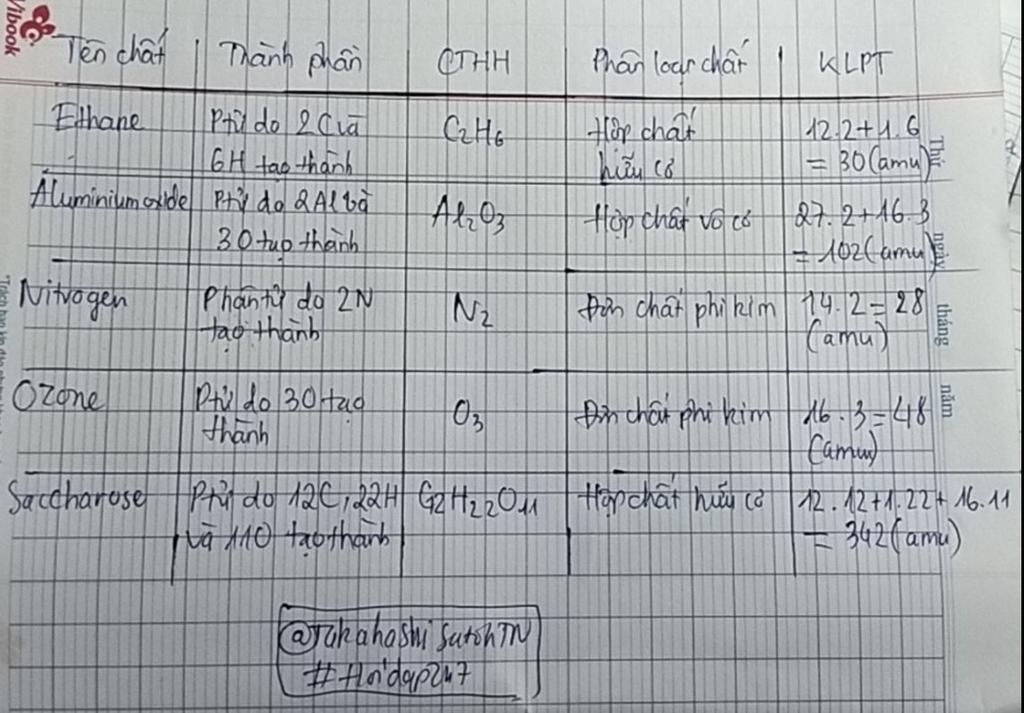 Vibook
Tên chất | Thành phần | CTHH | Phân loại chất | KLPT
Ethane | Ptử do 2C và | C₂H₆ | Hợp chất | 12.2+1.6
6H tạo thành | hữu cơ | = 30(amu)
Aluminium oxide | Ptử do 2Al và | Al₂O₃ | Hợp chất vô cơ | 27.2+16.3
3O tạo thành | = 102(amu)
Nitrogen | Phân tử do 2N | N₂ | Đơn chất phi kim | 14.2=28
tạo thành | (amu)
Ozone | Ptử do 3O tạo | O₃ | Đơn chất phi kim | 16.3=48
thành | (amu)
Saccharose | Ptử do 12C, 22H | C₁₂H₂₂O₁₁ | Hợp chất hữu cơ | 12.12+1.22+16.11
và 11O tạo thành | = 342(amu)
Thứ
ngày
tháng
năm
@TakahashiSatohTN
#Hoidap247